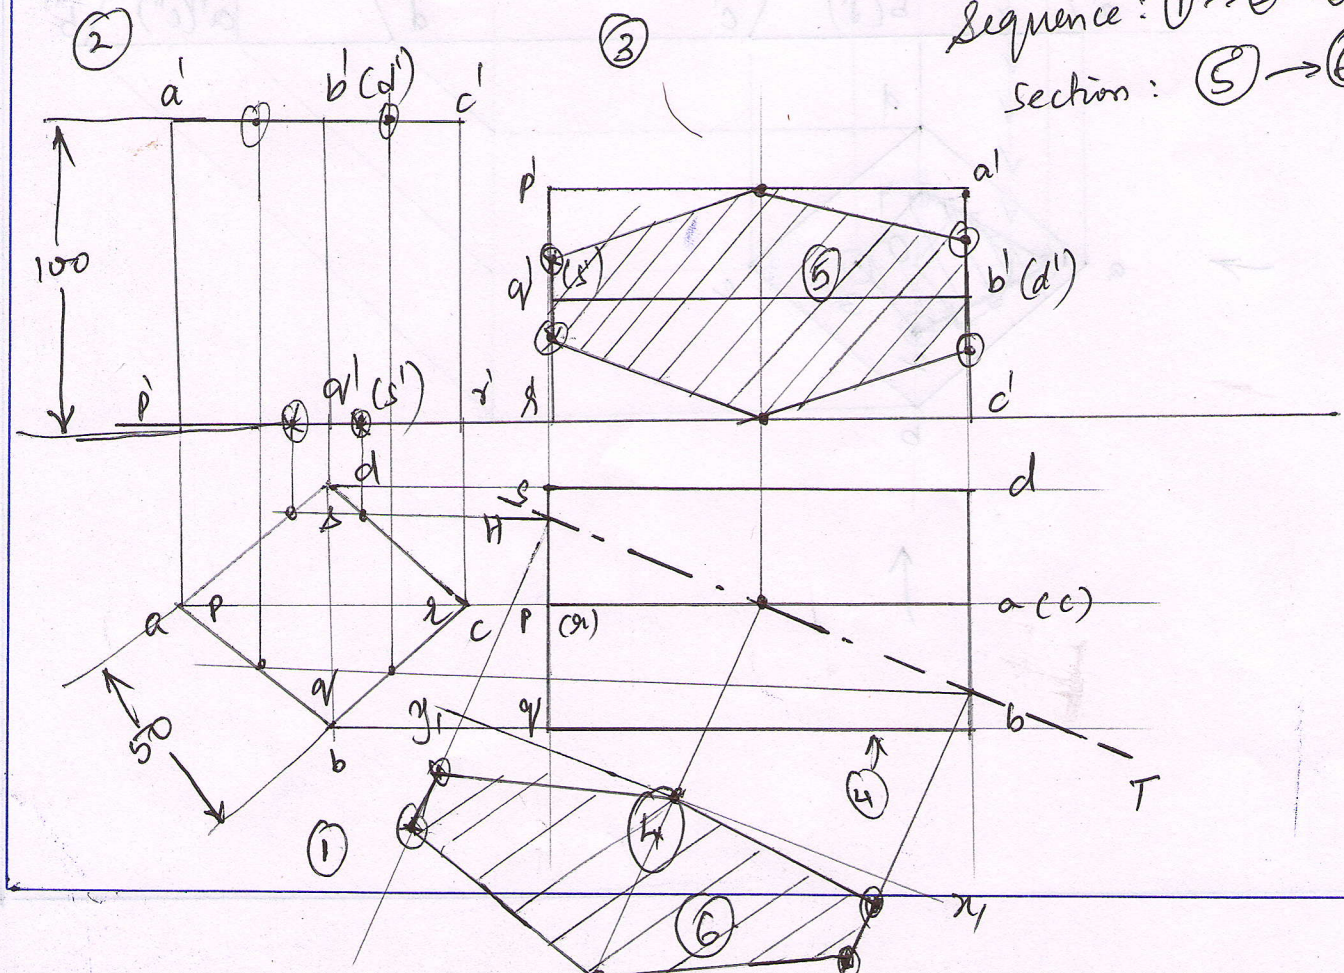 ②
③
Sequence: ①
Section: ⑤ → ⑥
a'
b'(d')
c'
100
p'
q'(s')
r'
p'
a'
q'
(s')
⑤
b'(d')
r
c'
d
s
s
H
d
a
p
r
c
p
(r)
a(c)
q
b
y₁
q
b
50
①
④
④
T
⑥
x₁